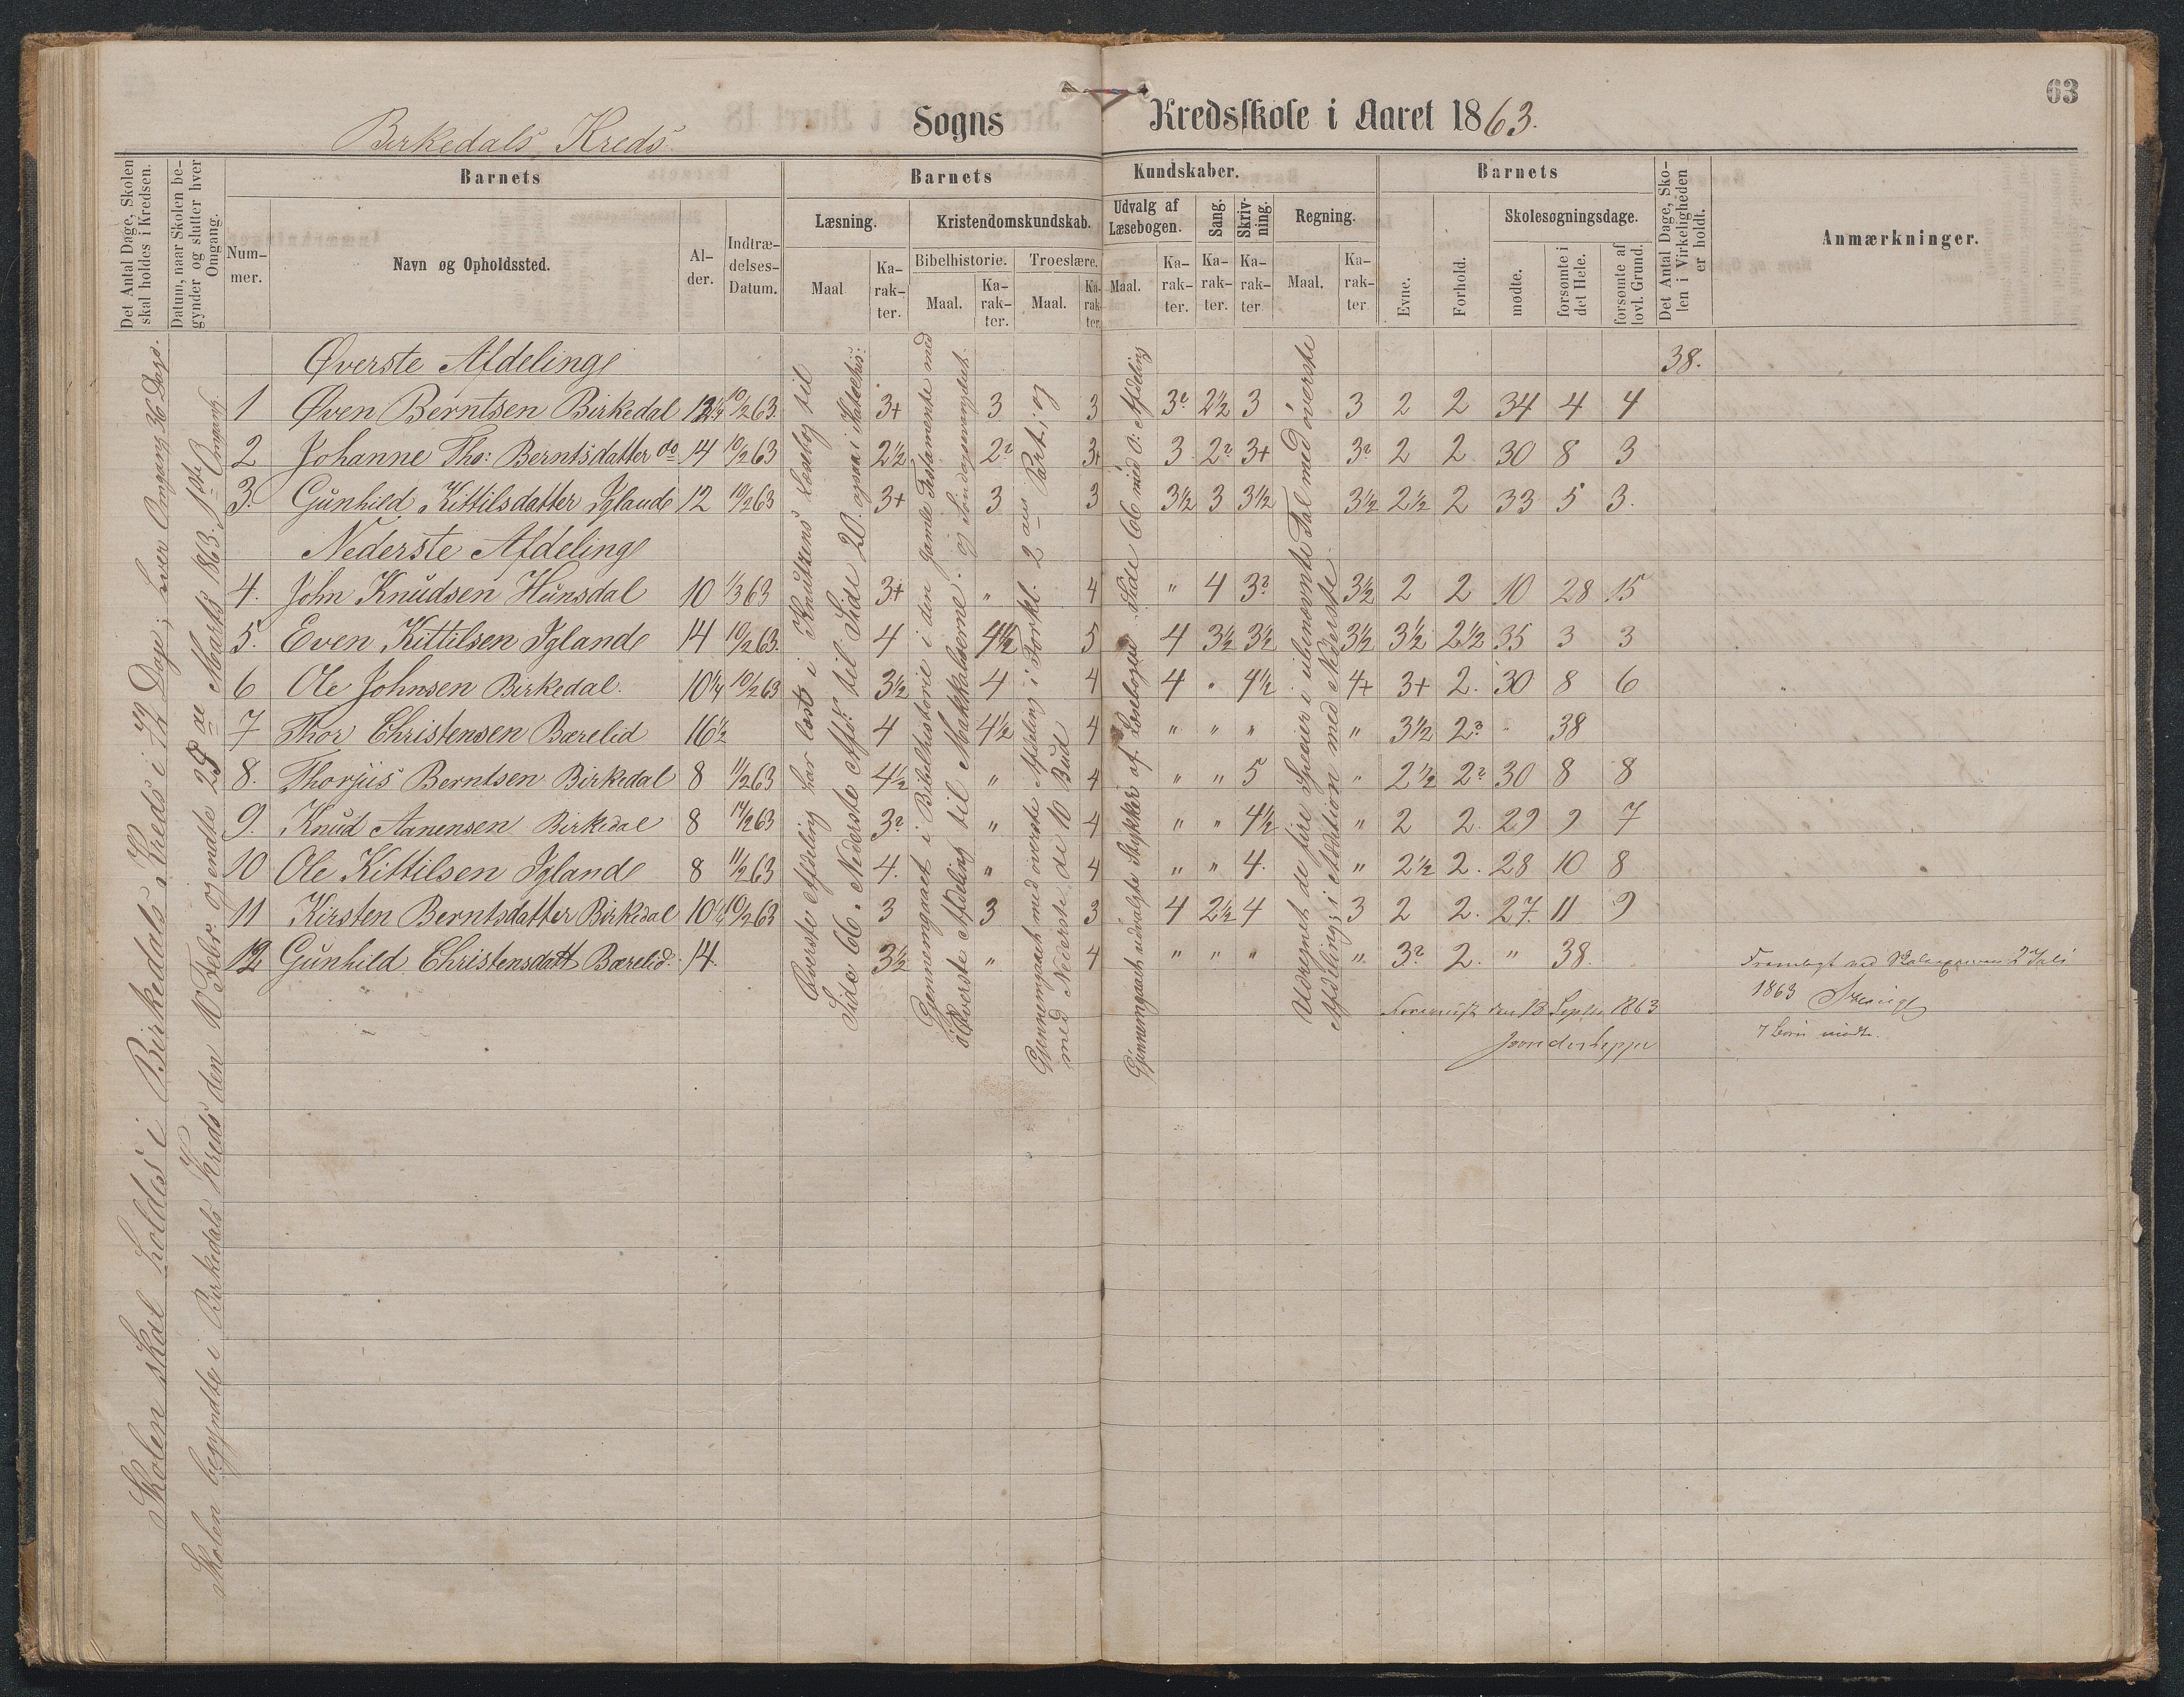 63
Birkedals Kreds Sogns Kredsskole i Aaret 1863.
Det Antal Dage, Skolen skal holdes i Kredsen.
Datum, naar Skolen begynder og slutter hver Omgang.
Barnets
Nummer.
Navn og Opholdssted.
Alder.
Indtrædelses-Datum.
Barnets Kundskaber.
Læsning.
Maal
Karakter.
Kristendomskundskab.
Bibelhistorie.
Maal.
Karakter.
Troeslære.
Maal.
Karakter.
Udvalg af Læsebogen.
Maal.
Karakter.
Sang.
Karakter.
Skrivning.
Karakter
Regning.
Maal.
Karakter
Barnets
Evne.
Forhold.
Skolesøgningsdage.
mødte.
forsømte i det Hele.
forsømte af lovl. Grund.
Det Antal Dage, Skolen i Virkeligheden er holdt.
Anmærkninger.
Skolen skal holdes i Birkedals Kreds i 72 Dage; hver Omgang 36 Dage.
Skolen begyndte i Birkedals Kreds den 10 Febr. og endte 25 Marts 1863. 1ste Omgang.
Øverste Afdeling har læst i Knutzens Læsebog til
Side 66. Nederste Afd: til Side 20. ogsaa i
Gjennemgaaet i Bibelhistorie i den gamle Testamente med
Øverste Afdeling til Makkabæerne. og
Gjennemgaaet med øverste Afdeling i Forkl. 2 Part; og
med Nederste de 10 Bud
Gjennemgaaet udvalgte Stykker af Læsebogen Side 66 med Ø: Afdeling
Udregnet de fire Specier i ubenævnte Tal med øverste
Afdeling; i Addition med Nederste
Øverste Afdeling 38.
1 Øven Berntsen Birkedal 12 1/4 10/2 63 3+ 3 3 3? 2½ 3 3 2 2 34 4 4
2 Johanne Tho: Berntsdatter do 14 10/2 63 2½ 2? 3+ 3 2? 3+ 3? 2 2 30 8 3
3. Gunhild Kittilsdatter Igland 12 10/2 63 3+ 3 3 3½ 3 3½ 3½ 2½ 2 33 5 3.
Nederste Afdeling
4. John Knudsen Hunsdal 10 1/3 63 3+ " 4 " 4 3? 3½ 2 2 10 28 15
5. Even Kittilsen Igland 14 10/2 63. 4 4½ 5 4 3½ 3½ 3½ 3½ 2½ 35 3 3
6 Ole Johnsen Birkedal. 10¼ 10/2 63 3½ 4 4 4 " 4½ 4+ 3+ 2. 30 8 6
7 Thor Christensen Bærelid 16½ 4 4½ 4 " " " " 3½ 2? " 38
8. Thorjus Berntsen Birkedal 8 11/2 63 4½ " 4 " " 5 " 2½ 2? 30 8 8
9. Knud Aanensen Birkedal 8 14/2 63 3? " 4 " " 4½ " 2 2. 29 9 7
10 Ole Kittilsen Igland 8 11/2 63 4. " 4 " " 4. " 2½ 2. 28 10 8
11 Kirsten Berntsdatter Birkedal 10½ 10/2 63 3 3 3 4 2½ 4 3 2 2. 27. 11 9
12 Gunhild Christensdatt Bærelid. 14. 3½ " 4 " " " " 3? 2. " 38.
den 13 Septbr 1863
Fremlagt ved 2 Juli
1863
7 Børn mødte.